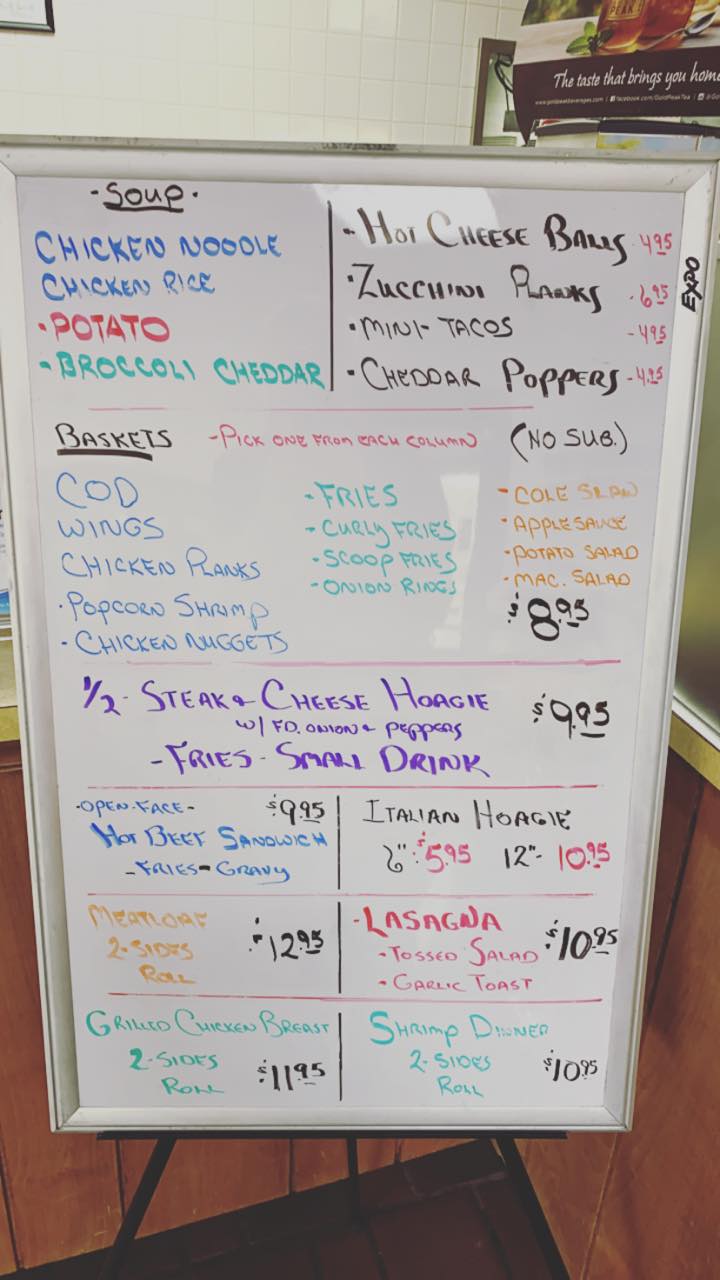 The taste that brings you home
-Soup-
CHICKEN NOODLE
CHICKEN RICE
·POTATO
·BROCCOLI CHEDDAR
·HOT CHEESE BALLS 4.95
·ZUCCHINI PLANKS ·6.95
·MINI-TACOS -4.95
·CHEDDAR POPPERS -4.95
EXPO
BASKETS -PICK ONE FROM EACH COLUMN (NO SUB.)
COD
WINGS
CHICKEN PLANKS
·POPCORN SHRIMP
·CHICKEN NUGGETS
-FRIES
·CURLY FRIES
·SCOOP FRIES
·ONION RINGS
-COLE SLAW
·APPLESAUCE
·POTATO SALAD
·MAC. SALAD
$8.95
1/2- STEAK & CHEESE HOAGIE $9.95
W/ FD. ONION & PEPPERS
-FRIES- SMALL DRINK
-OPEN-FACE- $9.95
HOT BEEF SANDWICH
-FRIES-GRAVY
ITALIAN HOAGIE
6": $5.95 12"- 10.95
MEATLOAF
2-SIDES $12.95
ROLL
·LASAGNA $10.95
·TOSSED SALAD
·GARLIC TOAST
GRILLED CHICKEN BREAST
2-SIDES $11.95
ROLL
SHRIMP DINNER
2-SIDES $10.95
ROLL